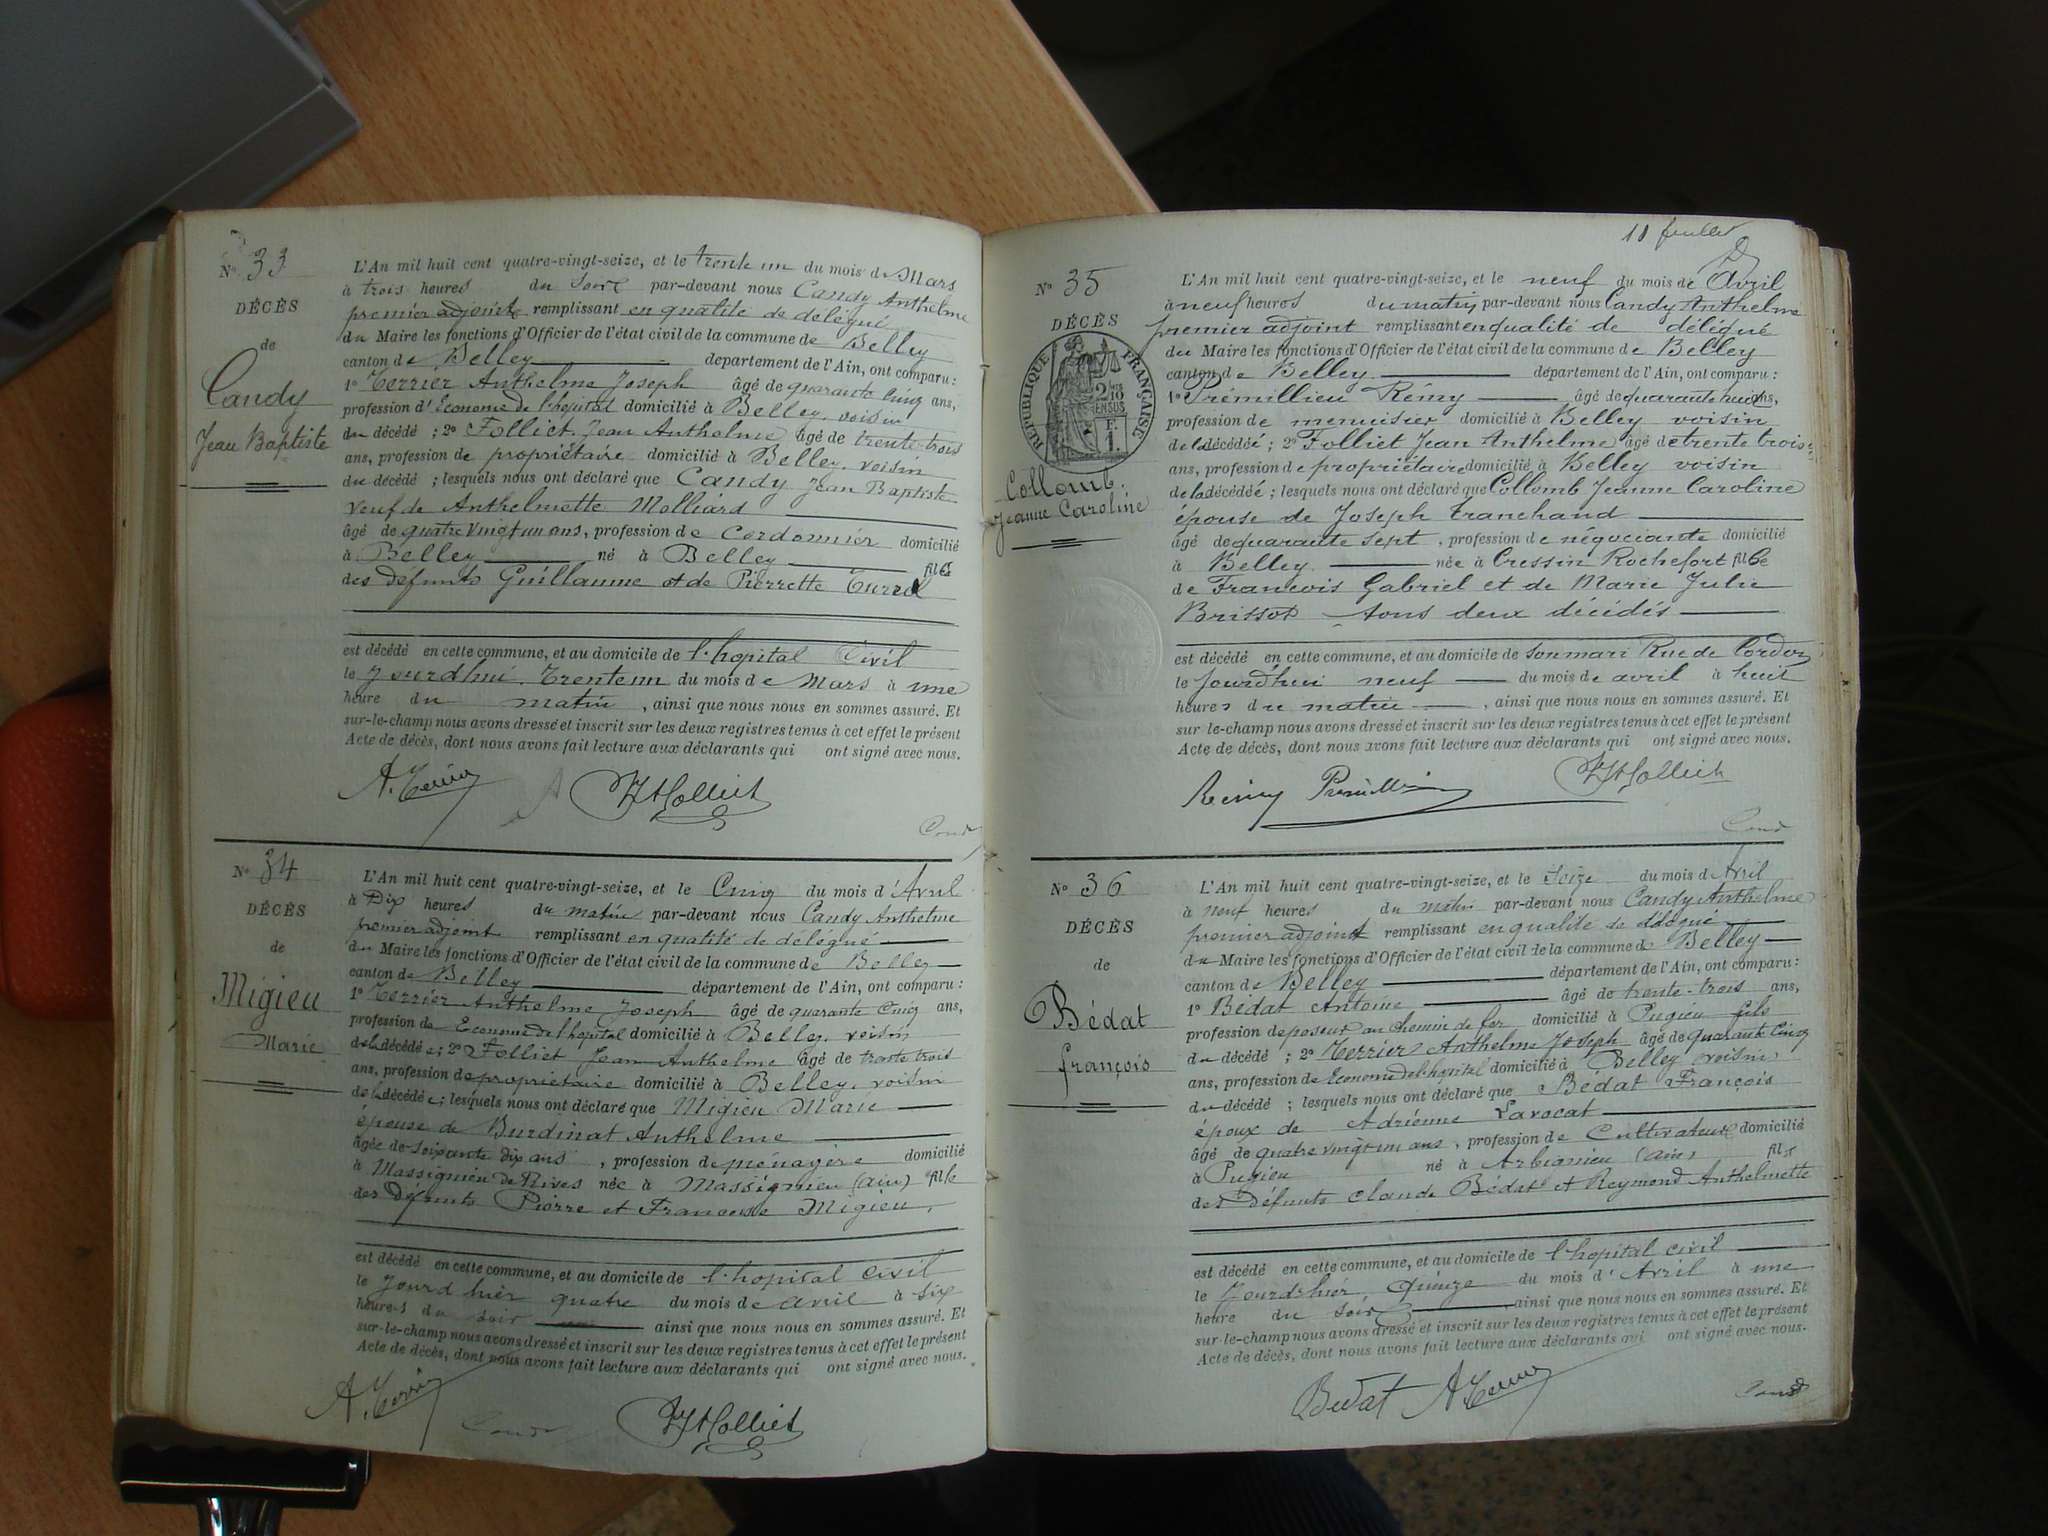 N° 33
DÉCÈS
de
Candy
Jean Baptiste
L'An mil huit cent quatre-vingt-seize, et le trente un du mois de Mars
à trois heures du soir par-devant nous Candy Anthelme
premier adjoint remplissant en qualité de délégué
du Maire les fonctions d'Officier de l'état civil de la commune de Belley
canton de Belley département de l'Ain, ont comparu :
1° Terrier Anthelme Joseph âgé de quarante cinq ans,
profession d'Econome de l'hopital domicilié à Belley, voisin
du décédé ; 2° Folliet Jean Anthelme âgé de trente-trois
ans, profession de propriétaire domicilié à Belley, voisin
du décédé ; lesquels nous ont déclaré que Candy Jean Baptiste
veuf de Anthelmette Molliard
âgé de quatre vingt un ans, profession de Cordonnier domicilié
à Belley né à Belley fils
des défunts Guillaume et de Pierrette Turrel
est décédé en cette commune, et au domicile de l'hopital Civil
le Jourd'hui Trente un du mois de Mars à une
heure du matin, ainsi que nous nous en sommes assuré. Et
sur-le-champ nous avons dressé et inscrit sur les deux registres tenus à cet effet le présent
Acte de décès, dont nous avons fait lecture aux déclarants qui ont signé avec nous.
A. Terrier
Folliet
N° 34
DÉCÈS
de
Migieu
Marie
L'An mil huit cent quatre-vingt-seize, et le Cinq du mois d'Avril
à Dix heures du matin par-devant nous Candy Anthelme
premier adjoint remplissant en qualité de délégué
du Maire les fonctions d'Officier de l'état civil de la commune de Belley
canton de Belley département de l'Ain, ont comparu :
1° Terrier Anthelme Joseph âgé de quarante Cinq ans,
profession de Econome de l'hopital domicilié à Belley, voisin
de la décédée ; 2° Folliet Jean Anthelme âgé de trente trois
ans, profession de propriétaire domicilié à Belley, voisin
de la décédée ; lesquels nous ont déclaré que Migieu Marie
épouse de Burdinat Anthelme
âgée de soixante dix ans, profession de ménagère domicilié
à Massignieu de Rives née à Massignieu (ain) fille
des Défunts Pierre et Françoise Migieu,
est décédé en cette commune, et au domicile de l'hopital civil
le Jourd'hier quatre du mois de avril à six
heures du soir ainsi que nous nous en sommes assuré. Et
sur-le-champ nous avons dressé et inscrit sur les deux registres tenus à cet effet le présent
Acte de décès, dont nous avons fait lecture aux déclarants qui ont signé avec nous.
A. Terrier
Folliet
11 feuillet
N° 35
DÉCÈS
RÉPUBLIQUE FRANÇAISE
2/10 EN SUS
F. 1.
Collomb
Jeanne Caroline
L'An mil huit cent quatre-vingt-seize, et le neuf du mois de Avril
à neuf heures du matin, par-devant nous Candy Anthelme
premier adjoint remplissant en qualité de délégué
du Maire les fonctions d'Officier de l'état civil de la commune de Belley
canton de Belley département de l'Ain, ont comparu :
1° Prémillieu Rémy âgé de quarante huit ans,
profession de menuisier domicilié à Belley voisin
de la décédée ; 2° Folliet Jean Anthelme âgé de trente trois
ans, profession de propriétaire domicilié à Belley voisin
de la décédée ; lesquels nous ont déclaré que Collomb Jeanne Caroline
épouse de Joseph Tranchand
âgé de quarante sept, profession de négociante domicilié
à Belley née à Cressin Rochefort fille
de François Gabriel et de Marie Julie
Brissot tous deux décédés
est décédé en cette commune, et au domicile de son mari Rue de Cordon
le Jourd'hui neuf du mois de avril à huit
heures du matin, ainsi que nous nous en sommes assuré. Et
sur-le-champ nous avons dressé et inscrit sur les deux registres tenus à cet effet le présent
Acte de décès, dont nous avons fait lecture aux déclarants qui ont signé avec nous.
Rémy Prémillieu
Folliet
N° 36
DÉCÈS
de
Bédat
françois
L'An mil huit cent quatre-vingt-seize, et le Seize du mois d'Avril
à neuf heures du matin par-devant nous Candy Anthelme
premier adjoint remplissant en qualité de délégué
du Maire les fonctions d'Officier de l'état civil de la commune de Belley
canton de Belley département de l'Ain, ont comparu :
1° Bédat Antoine âgé de trente-trois ans,
profession de poseur au chemin de fer domicilié à Pugieu fils
du décédé ; 2° Terrier Anthelme Joseph âgé de quarante Cinq
ans, profession de Econome de l'hopital domicilié à Belley voisin
du décédé ; lesquels nous ont déclaré que Bédat François
époux de Adrienne Lavocat
âgé de quatre vingt un ans, profession de Cultivateur domicilié
à Pugieu né à Arbignieu (ain) fils
des Défunts Claude Bédat et Reymond Anthelmette
est décédé en cette commune, et au domicile de l'hopital civil
le Jourd'hier, Quinze du mois d'Avril à une
heure du soir, ainsi que nous nous en sommes assuré. Et
sur-le-champ nous avons dressé et inscrit sur les deux registres tenus à cet effet le présent
Acte de décès, dont nous avons fait lecture aux déclarants qui ont signé avec nous.
Bedat A. Terrier